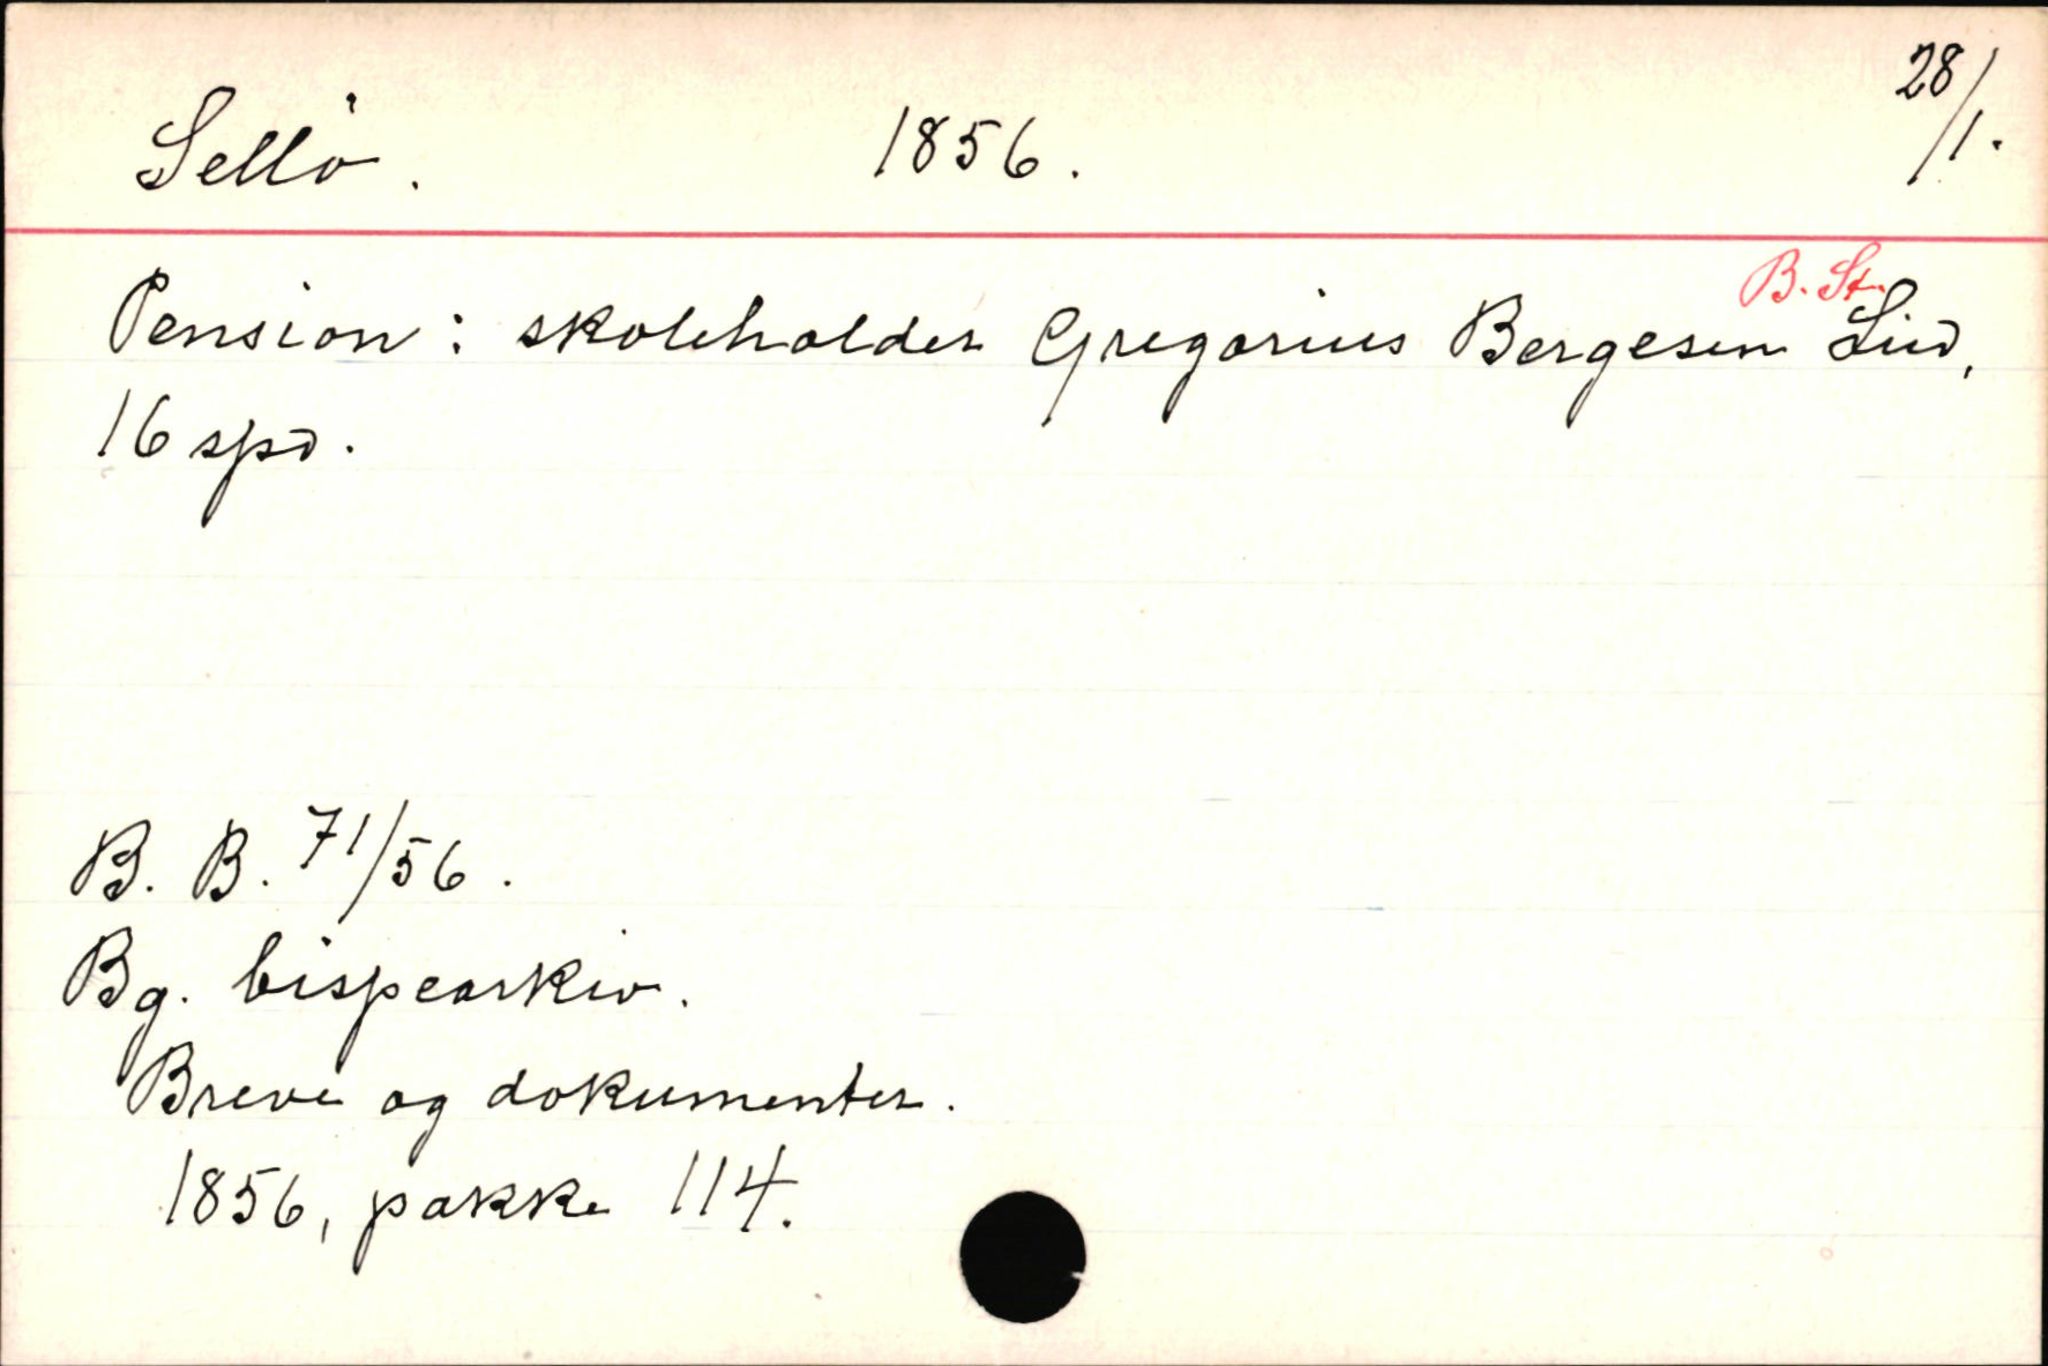 Sellö. 1856. 28/1.
B. St.
Pension: skoleholder Gregorius Bergesen Lid,
16 spd.
B. B. 71/56.
Bg. bispearkiv.
Breve og dokumenter.
1856, pakke 114.